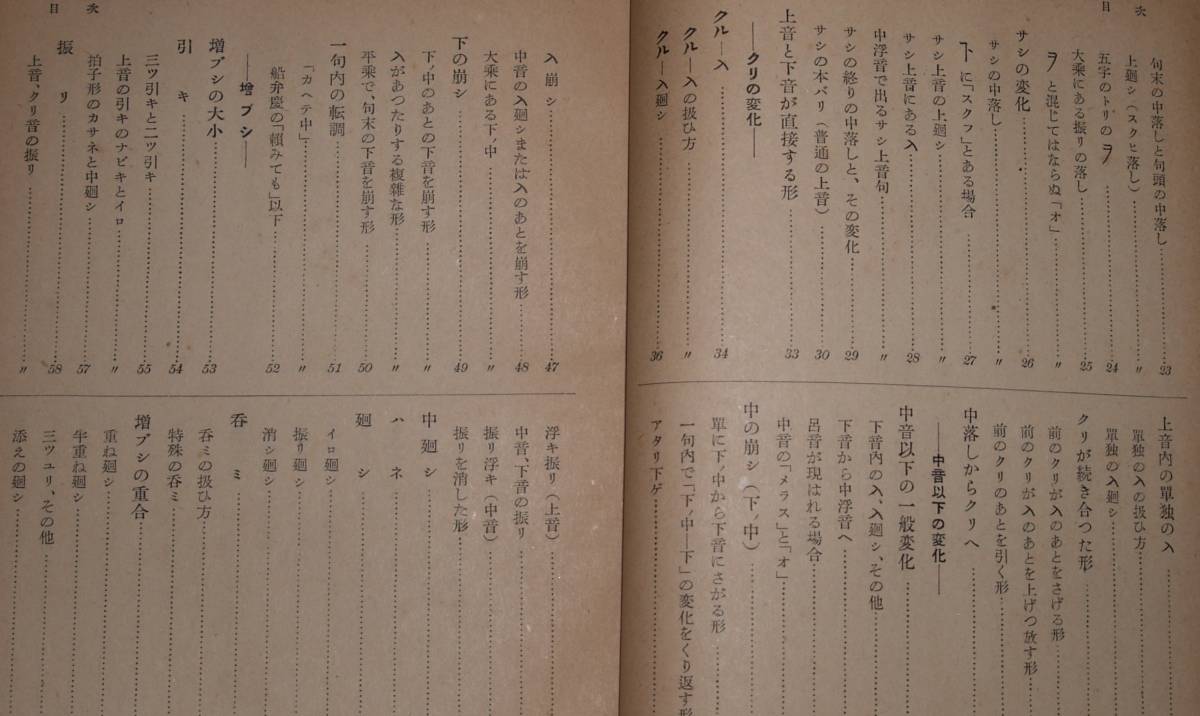 目次
句末の中落しと句頭の中落し……23
上廻シ（スクヒ落し）……〃
五字のトリのヲ……24
大乗にある振リの落し……25
ヲと混じてはならぬ「オ」……〃
サシの変化……26
サシの中落し……〃
下に「スクフ」とある場合……27
サシ上音の上廻シ……〃
サシ上音にある入……28
中浮音で出るサシ上音句……〃
サシの終りの中落しと、その変化……29
サシの本バリ（普通の上音）……30
上音と下音が直接する形……33
――クリの変化――
クル―入……34
クル―入の扱ひ方……〃
クル―入廻シ……36
上音内の單独の入
單独の入の扱ひ方
單独の入廻シ
クリが続き合つた形
前のクリが入のあとをさげる形
前のクリが入のあとを上げつ放す形
前のクリのあとを引く形
中落しからクリへ
――中音以下の変化――
中音以下の一般変化
下音内の入、入廻シ、その他
下音から中浮音へ
呂音が現はれる場合
中音の「メラス」と「オ」
中の崩シ（下ノ中）
單に下ノ中から下音にさがる形
一句内で「下ノ中―下」の変化をくり返す形
アタリ下ゲ
目次
入崩シ……47
中音の入廻シまたは入のあとを崩す形……48
大乗にある下ノ中……〃
下の崩シ……49
下ノ中のあとの下音を崩す形……〃
入があつたりする複雑な形……〃
平乗で、句末の下音を崩す形……50
一句内の転調……51
「カヘテ中」……〃
船弁慶の「頼みても」以下……52
――増ブシ――
増ブシの大小……53
引キ……54
三ツ引キと二ツ引キ……55
上音の引キのナビキとイロ……〃
拍子形のカサネと中廻シ……57
振リ……58
上音、クリ音の振リ……〃
浮キ振リ（上音）
中音、下音の振リ
振リ浮キ（中音）
振リを消した形
中廻シ
ハネ
廻シ
イロ廻シ
振リ廻シ
消シ廻シ
呑ミ
呑ミの扱ひ方
特殊の呑ミ
増ブシの重合
重ね廻シ
半重ね廻シ
三ツユリ、その他
添えの廻シ